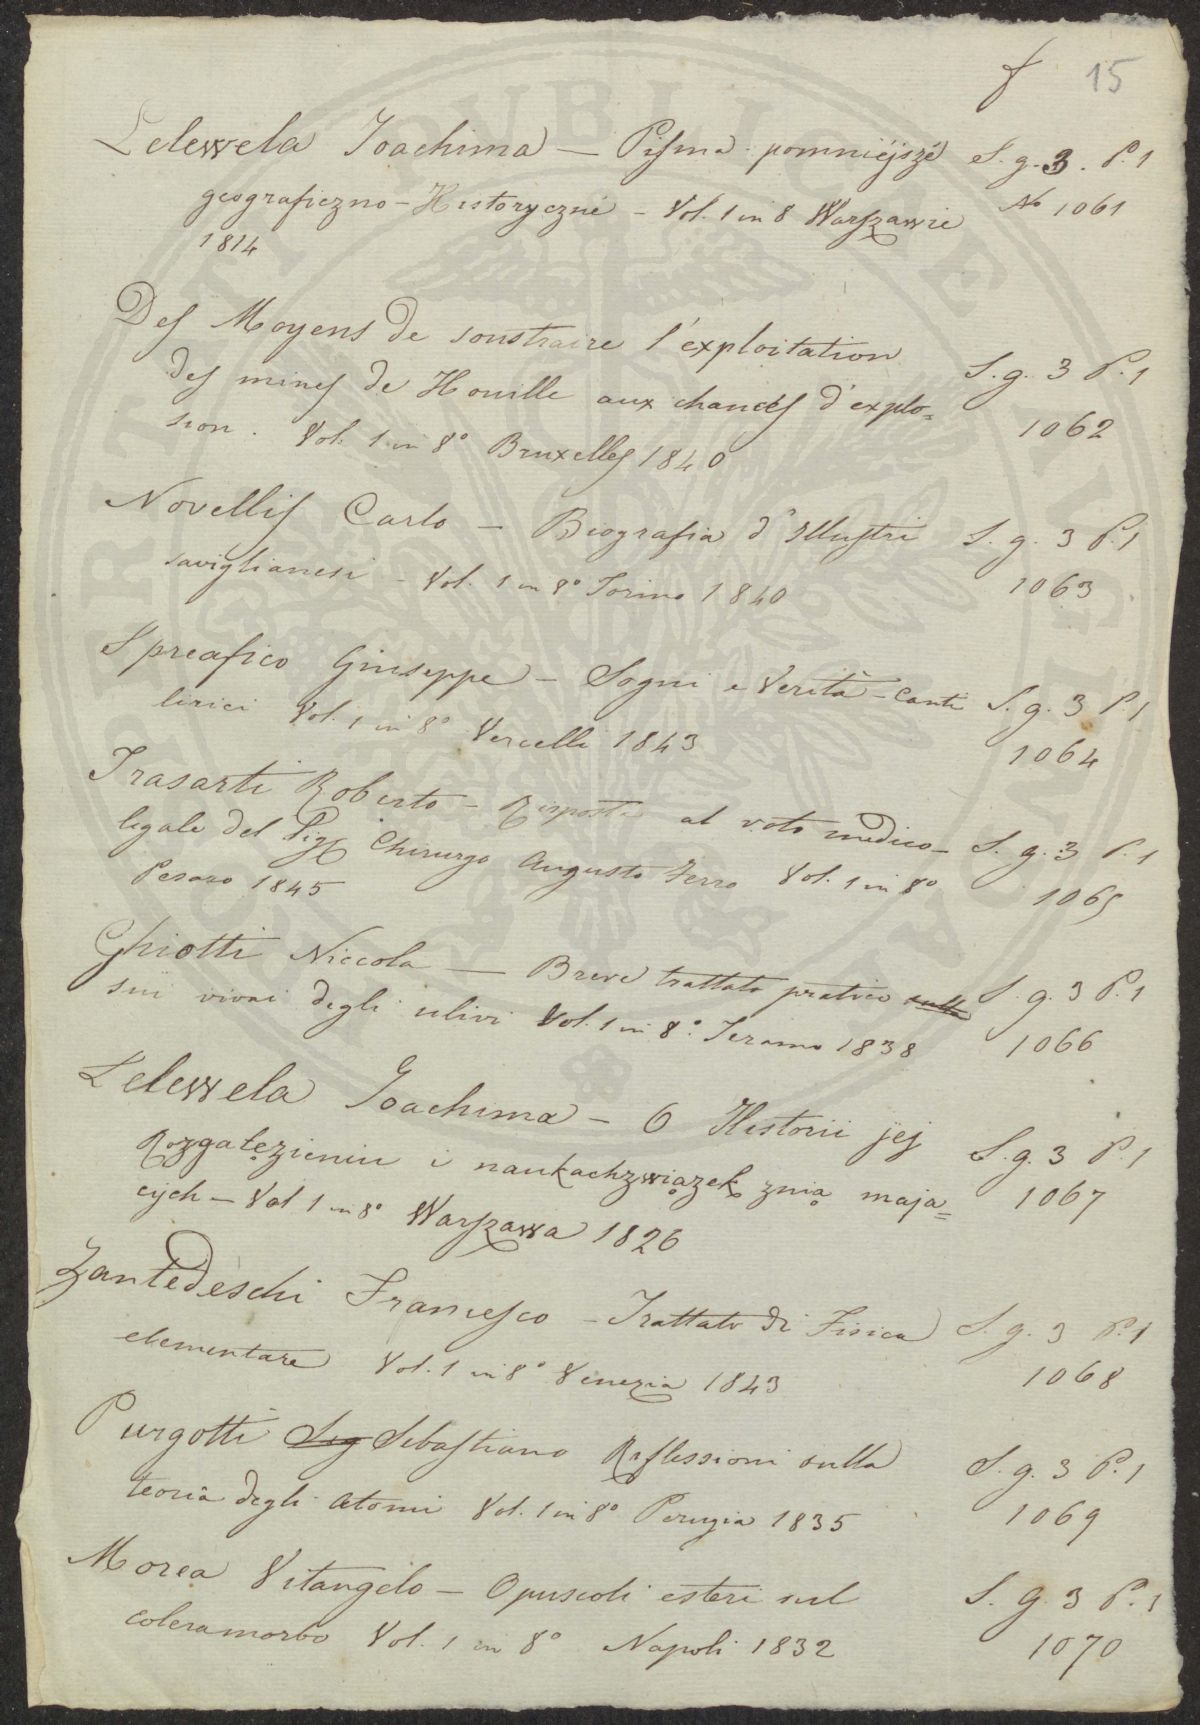 f 15
Lelewela Joachima — Pisma pomniéjszé S. g. 3. P. 1
geograficzno-Historyczné - Vol. 1 in 8 Warszawie No 1061
1814
Des Moyens de soustraire l'exploitation S. g. 3 P. 1
des mines de Houille aux chances d'explo= 1062
sion. Vol. 1 in 8º Bruxelles 1840
Novellis Carlo — Biografia d'Illustri S. g. 3 P. 1
saviglianesi - Vol. 1 in 8º Torino 1840 1063
Spreafico Giuseppe — Sogni e Verità - Canti S. g. 3 P. 1
lirici Vol. 1 in 8º Vercelli 1843 1064
Trasarti Roberto - Risposta al voto medico- S. g. 3 P. 1
legale del Sig Chirurgo Augusto Ferro Vol. 1 in 8º 1065
Pesaro 1845
Ghiotti Niccola — Breve trattato pratico sulla S. g. 3 P. 1
sui vivai degli ulivi Vol. 1 in 8º Teramo 1838 1066
Lelewela Joachima — O Historii jéj S. g. 3 P. 1
Rozgałęzieniu i naukachzwiązek znią mają= 1067
cych — Vol 1 in 8º Warszawa 1826
Zantedeschi Francesco - Trattato di Fisica S. g. 3 P. 1
elementare Vol. 1 in 8º Venezia 1843 1068
Purgotti Sig Sebastiano Riflessioni sulla S. g. 3 P. 1
teoria degli atomi Vol. 1 in 8º Perugia 1835 1069
Morea Vitangelo — Opuscoli esteri sul S. g. 3 P. 1
coleramorbo Vol. 1 in 8º Napoli 1832 1070